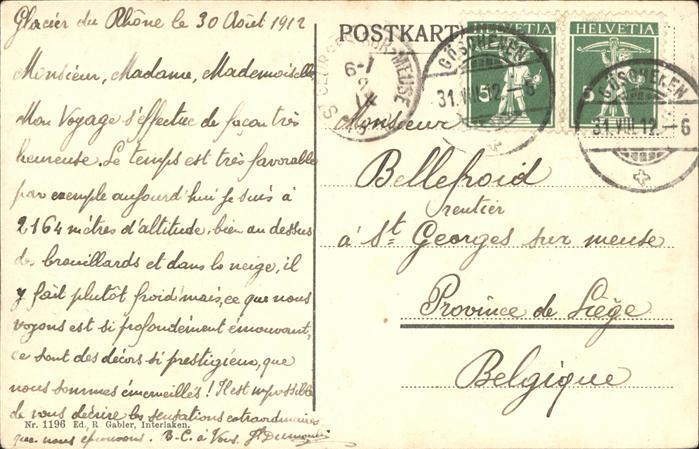 Glacier du Rhône le 30 Août 1912
Monsieur, Madame, Mademoiselle,
Mon Voyage s'effectue de façon très
heureuse. Le temps est très favorable
par exemple aujourd'hui je suis à
2164 mètres d'altitude. bien au dessus
des brouillards et dans la neige, il
y fait plutôt froid mais, ce que nous
voyons est si profondément émouvant,
ce sont des décors si prestigieux, que
nous sommes émerveillés! Il est impossible
de vous décrire les sensations extraordinaires
que nous éprouvons. B-C. à Vous.
Nr. 1196 Ed. R. Gabler, Interlaken.
POSTKARTE
HELVETIA
HELVETIA
5
5
GÖSCHENEN
31.VIII.12.-6
GÖSCHENEN
31.VIII.12.-6
ST GEORGES-SUR-MEUSE
6-7
IX
Monsieur
Bellefroid
rentier
à St Georges sur meuse
Province de Liège
Belgique